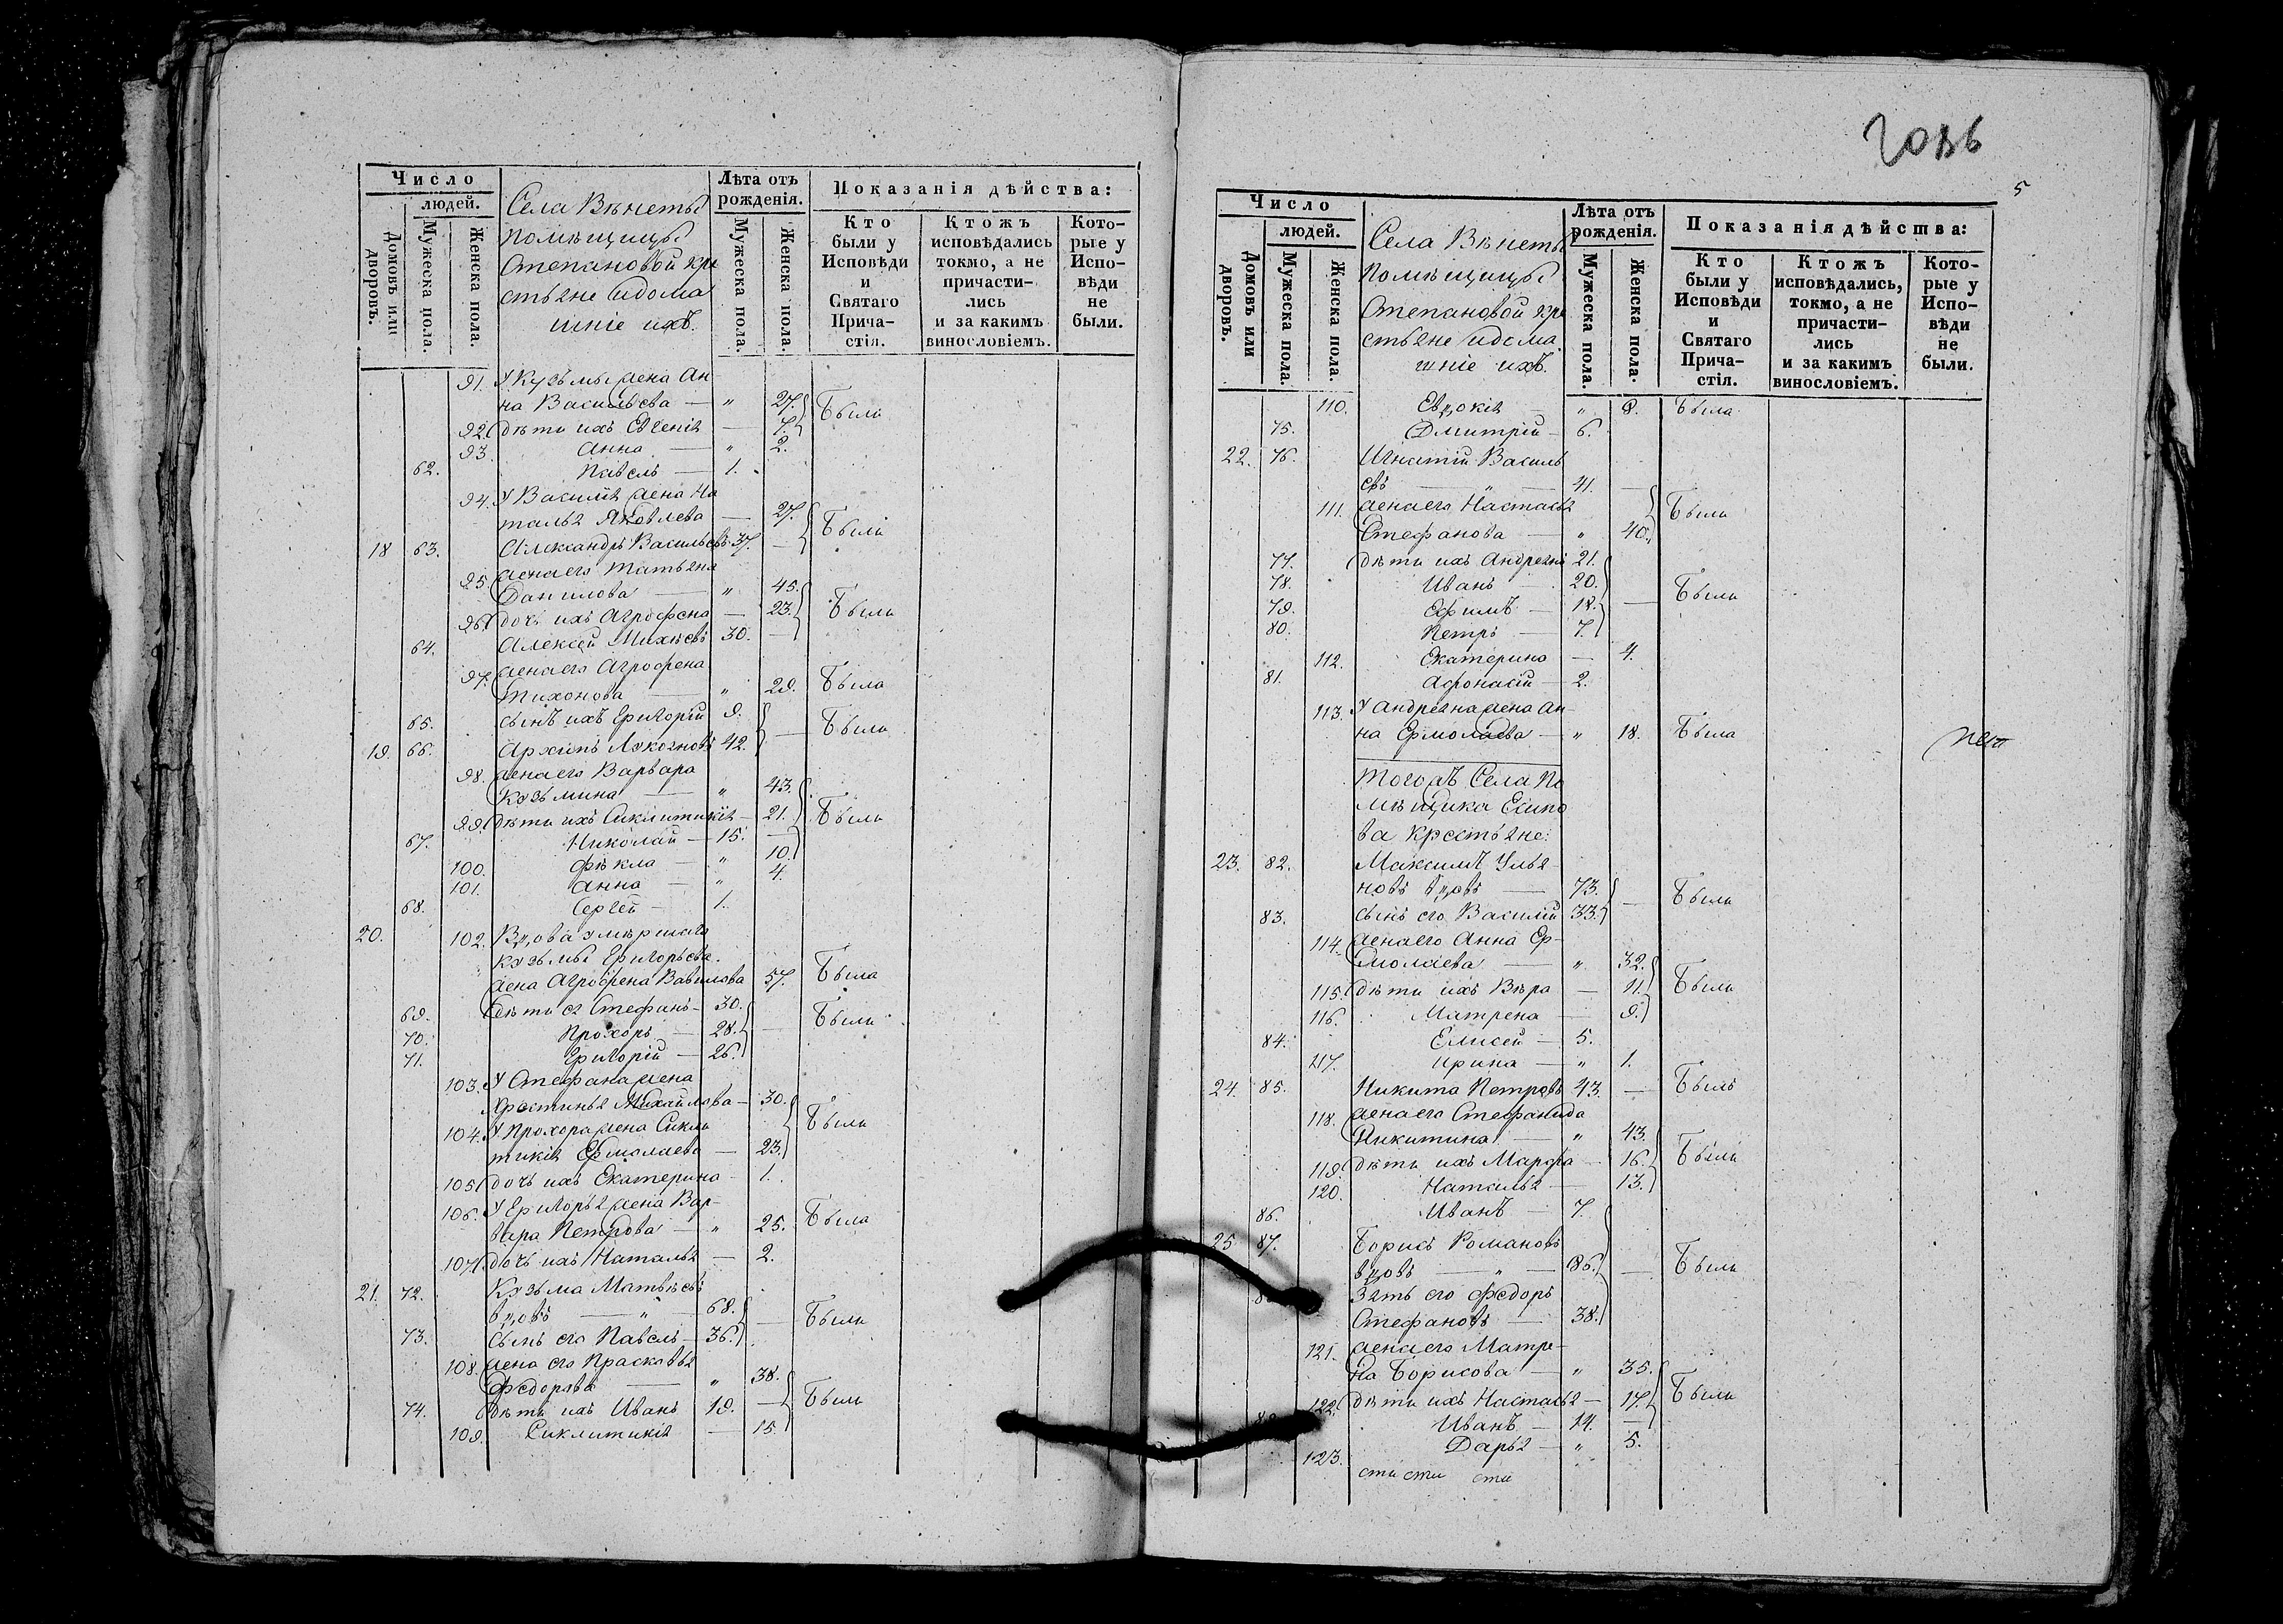 Число
людей.
Домовъ или дворовъ.
Мужеска пола.
Женска пола.
Села Вѣнеты
помѣщицы
Степановой кре
стьяне идома
шніе ихъ.
Лѣта отъ рожденія.
Мужеска пола.
Женска пола.
Показанія дѣйства:
Кто были у Исповѣди и Святаго Прича- стія.
Ктожъ исповѣдались токмо, а не причасти- лись и за какимъ винословіемъ.
Кото- рые у Испо- вѣди не были.
91. У Кузьмы жена Ан
на Васильева — " 27. Были
92. дѣти ихъ Евгенія — 7.
93. Анна — " 2.
62. Павелъ — 1.
94. У Василія жена На
талья Яковлева — 27. Были
18 63. Александръ Васильевъ 37. —
95. жена его Татьяна
Данилова — " 45. Были
96. дочь ихъ Агрофена — 23.
64. Алексей Михѣевъ 30. —
97. жена его Агрофена
Тихонова — " 29. Была
65. сынъ ихъ Григорій 9. — Были
19. 66. Архипъ 42.
98. жена его Варвара
Кузьмина — " 43. Были
99. дѣти ихъ Сиклитикія — 21.
67. Николай — 15. —
100. Фѣкла — " 10.
101. Анна — " 4.
68. Сергей — 1.
20. 102. Вдова умершаго
Кузьмы Григорьева
жена Агрофена Вавилова 57. Была
69. дѣти ея Стефанъ — 30. — Были
70. Прохоръ — 28.
71. Григорій — 26.
103. У Стефана жена
Хрестинья Михайлова — 30. Были
104. У Прохора жена Сикли
тикія Ермолаева — 23.
105. дочь ихъ Екатерина — 1.
106. У Григорья жена Вар-
вара Петрова — " 25. Была
107. дочь ихъ Наталья — 2.
21. 72. Кузьма Матвѣевъ
вдовъ — " 68. — Были
73. сынъ его Павелъ — 36.
108. жена его Прасковья
Федорова — " 38. Были
74. дѣти ихъ Иванъ 19. —
109. Сиклитикія — 15.
5
Число
людей.
Домовъ или дворовъ.
Мужеска пола.
Женска пола.
Села Вѣнеты
помѣщицы
Степановой кре
стьяне идома
шніе ихъ.
Лѣта отъ рожденія.
Мужеска пола.
Женска пола.
Показанія дѣйства:
Кто были у Исповѣди и Святаго Прича- стія.
Ктожъ исповѣдались, токмо, а не причасти- лись и за какимъ винословіемъ.
Кото- рые у Испо- вѣди не были.
110. Евдокія — " 8. Была
75. Дмитрій — 6.
22. 76. Игнатій Василь
евъ — " — 41. —
111. жена его Настасья Были
Стефанова — " 40.
77. дѣти ихъ Андреянъ 21.
78. Иванъ — 20. — Были
79. Ефимъ — 18.
80. Петръ — 7.
112. Екатерина — 4.
81. Афонасій — 2.
113. У Андреяна жена Ан-
на Ермолаева — " 18. Была
Тогожъ Села По
мѣщика Есипо
ва крестьяне:
23. 82. Максимъ Улья
новъ вдовъ — 73. — Были
83. сынъ его Василій 33.
114. жена его Анна Ер-
молаева — " 32. Были
115. дѣти ихъ Вѣра — 11.
116. Матрена — 9.
84. Елисей — 5.
117. Ирина — " 1.
24. 85. Никита Петровъ 43. — Былъ
118. жена его Стефанида
Никитина — " 43. Были
119. дѣти ихъ Марфа — 16.
120. Наталья — 13.
86. Иванъ — 7.
25 87. Борисъ Романовъ
вдовъ — " — 86. — Были
Зять его Федоръ
Стефановъ — 38.
121. жена его Матре-
на Борисова — " 35. Были
122. дѣти ихъ Настасья — 17.
Иванъ — 14. —
123. Дарья — " 5.